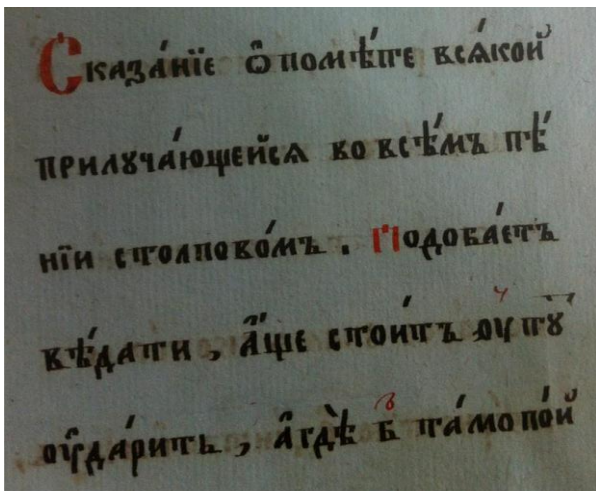 Сказа́нїе ѡ҆ помѣ́те всѧ́кой
прилꙋча́ющейсѧ во всѣ́мъ пѣ́
нїи столпово́мъ . Подоба́етъ
вѣ́дати , а҆́ще стои́тъ оу тꙋ̀
оу҆да́рить , а҆гдѣ̀ б та́мо по́й